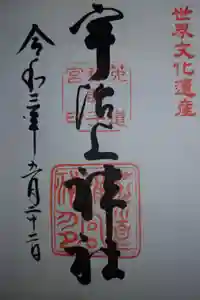 世界文化遺産
宇治上神社
令和三年九月二十二日